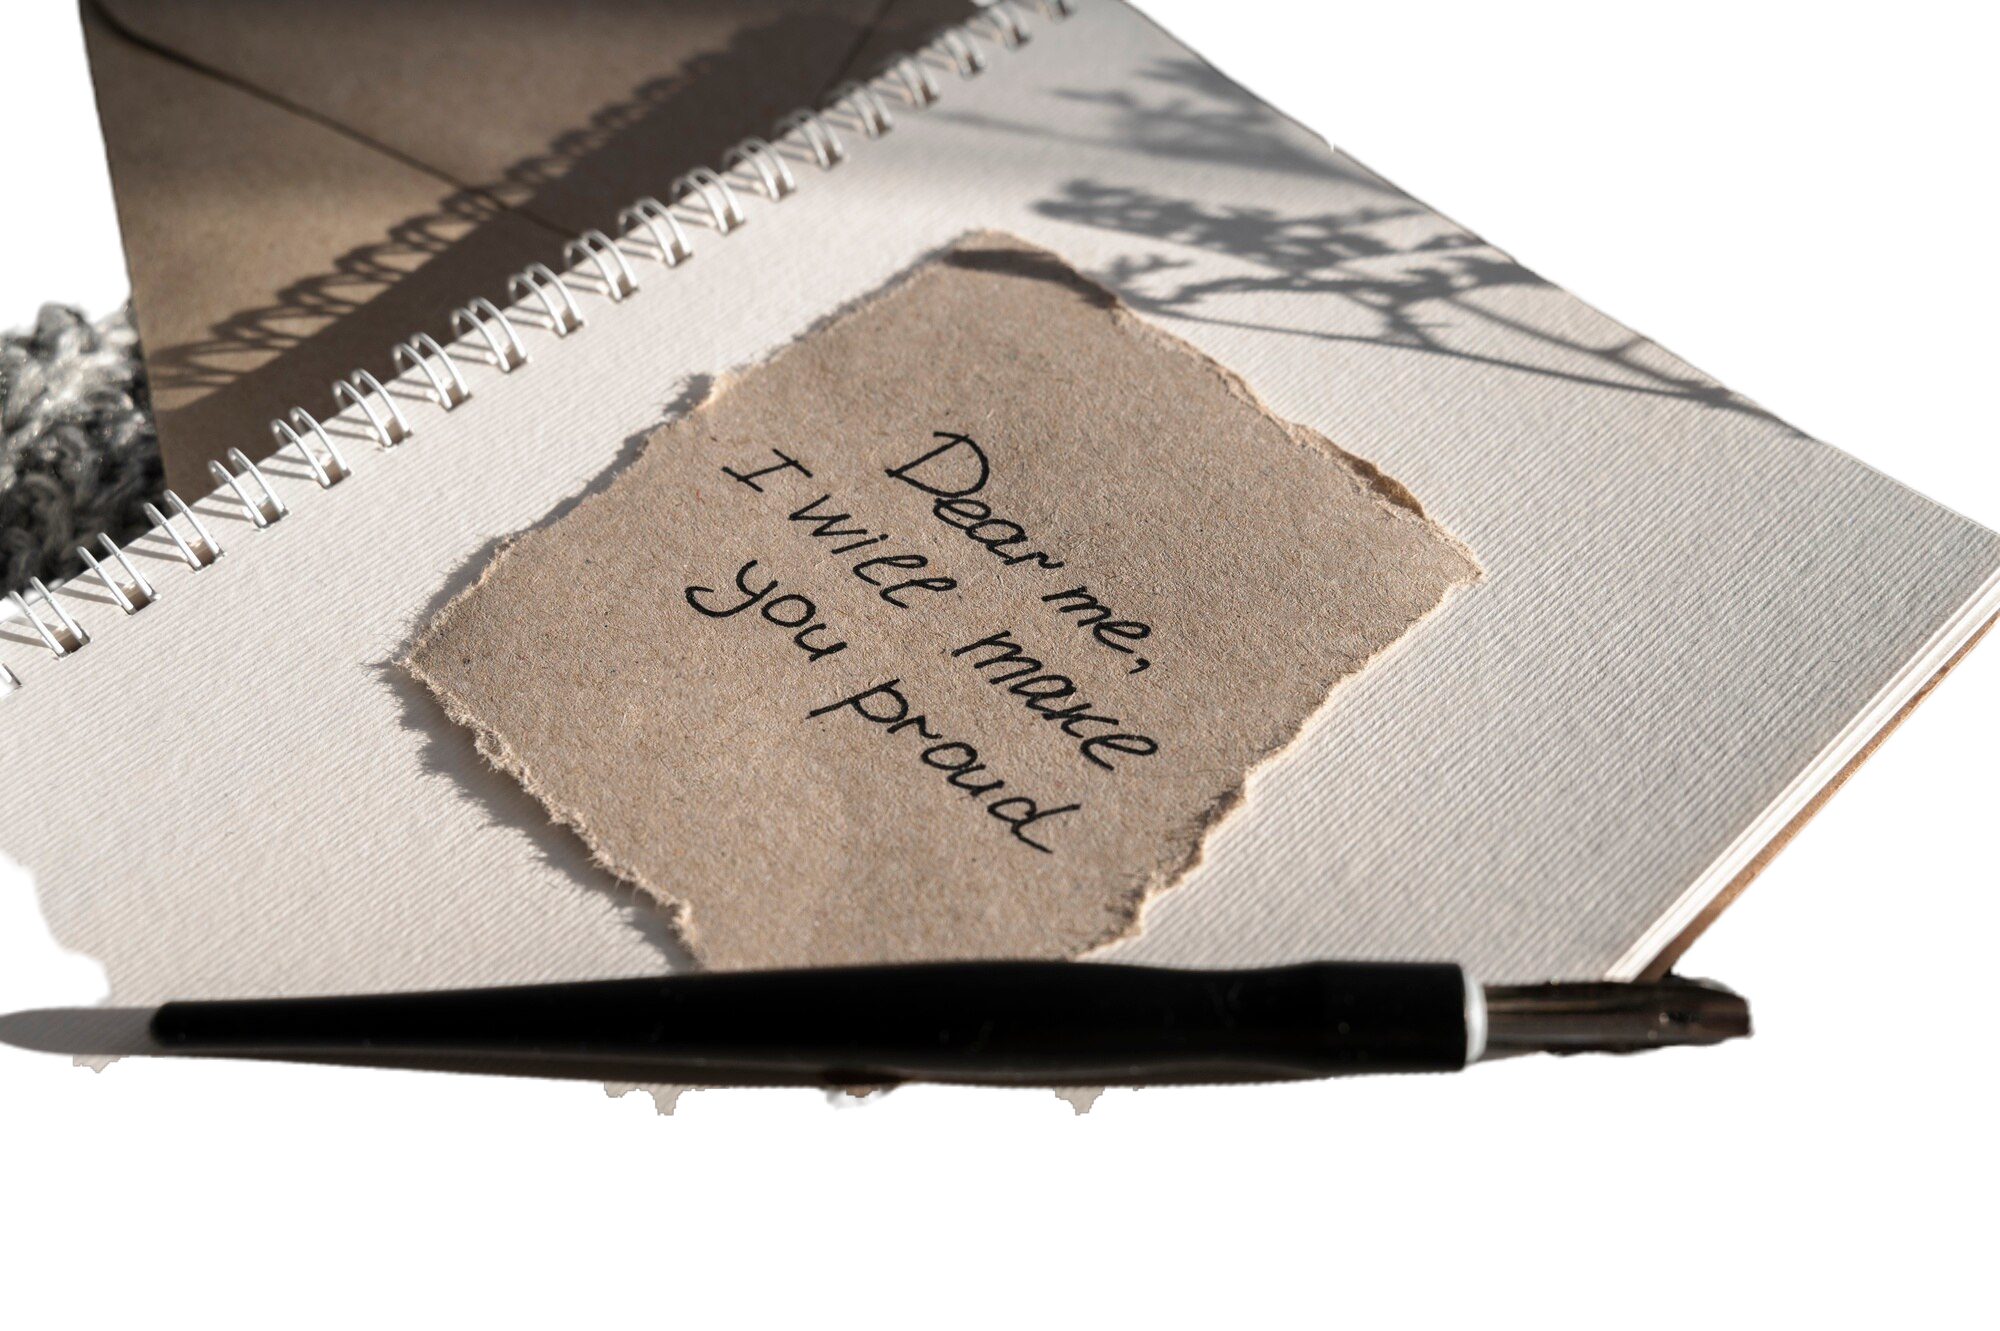 Dear me,
I will make
you proud